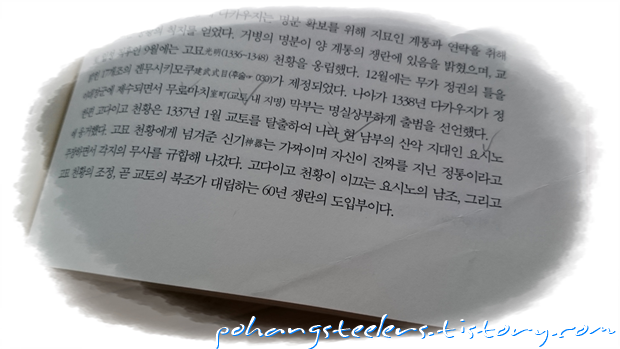 다카우지는 명분 확보를 위해 지묘인 계통과 연락을 취해
직지를 얻었다. 거병의 명분이 양 계통의 쟁란에 있음을 밝혔으며, 교
9월에는 고묘光明(1336-1348) 천황을 옹립했다. 12월에는 무가 정권의 틀을
17개조의 겐무시키모쿠建武式目(후술→030)가 제정되었다. 나아가 1338년 다카우지가 정
에 제수되면서 무로마치室町(교토 내 지명) 막부는 명실상부하게 출범을 선언했다.
한편 고다이고 천황은 1337년 1월 교토를 탈출하여 나라 현 남부의 산악 지대인 요시노
고묘 천황에게 넘겨준 신기神器는 가짜이며 자신이 진짜를 지닌 정통이라고
하면서 각지의 무사를 규합해 나갔다. 고다이고 천황이 이끄는 요시노의 남조, 그리고
고묘 천황의 조정, 곧 교토의 북조가 대립하는 60년 쟁란의 도입부이다.
pohangsteelers.tistory.com